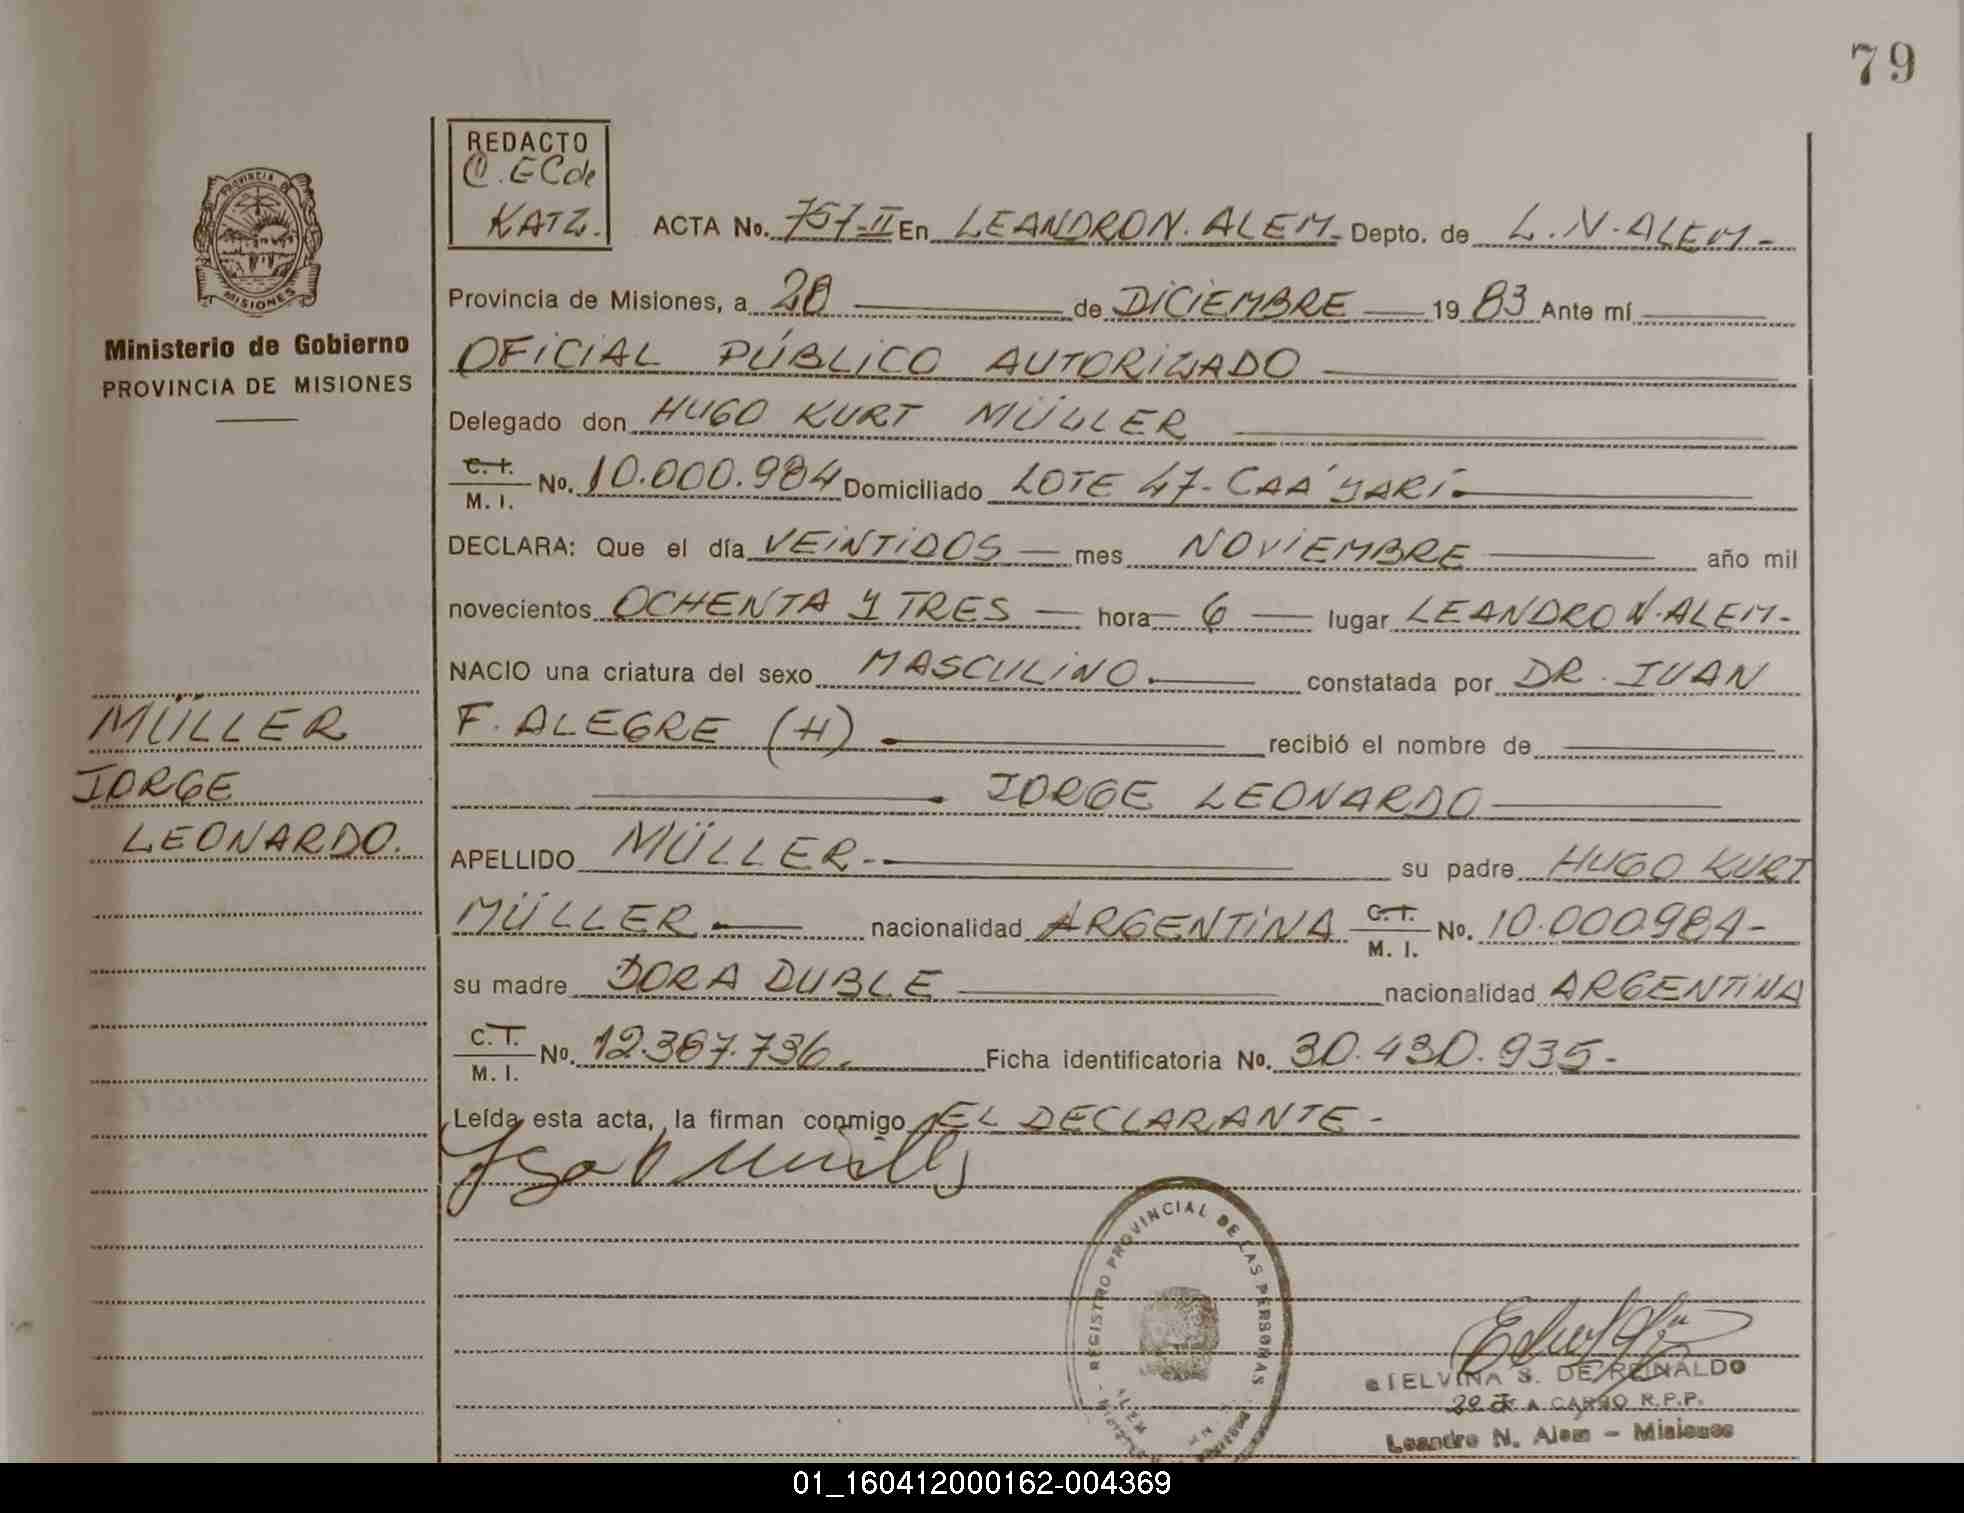 79
REDACTO
C. EC de
KATZ.
ACTA No. 757-II En LEANDRO N. ALEM- Depto. de L.N-ALEM-
PROVINCIA DE
MISIONES
Provincia de Misiones, a 28 de DICIEMBRE 19 83 Ante mí
Ministerio de Gobierno
PROVINCIA DE MISIONES
OFICIAL PÚBLICO AUTORIZADO
Delegado don HUGO KURT MÜLLER
C. I. / M. I. No. 10.000.984 Domiciliado LOTE 47- CAÁ YARÍ-
DECLARA: Que el día VEINTIDOS mes NOVIEMBRE año mil
novecientos OCHENTA Y TRES hora 6 lugar LEANDRO N. ALEM-
NACIO una criatura del sexo MASCULINO. constatada por DR. JUAN
F. ALEGRE (H) recibió el nombre de
JORGE LEONARDO
APELLIDO MÜLLER- su padre HUGO KURT
MÜLLER nacionalidad ARGENTINA C. I. / M. I. No. 10.000984-
su madre DORA DUBLE nacionalidad ARGENTINA
C. I. / M. I. No. 12.367.736. Ficha identificatoria No. 30.430.935-
Leída esta acta, la firman conmigo EL DECLARANTE-
MÜLLER
JORGE
LEONARDO.
REGISTRO PROVINCIAL DE LAS PERSONAS
ETELVINA S. DE REINALDO
A CARGO R.P.P.
Leandro N. Alem - Misiones
01_160412000162-004369